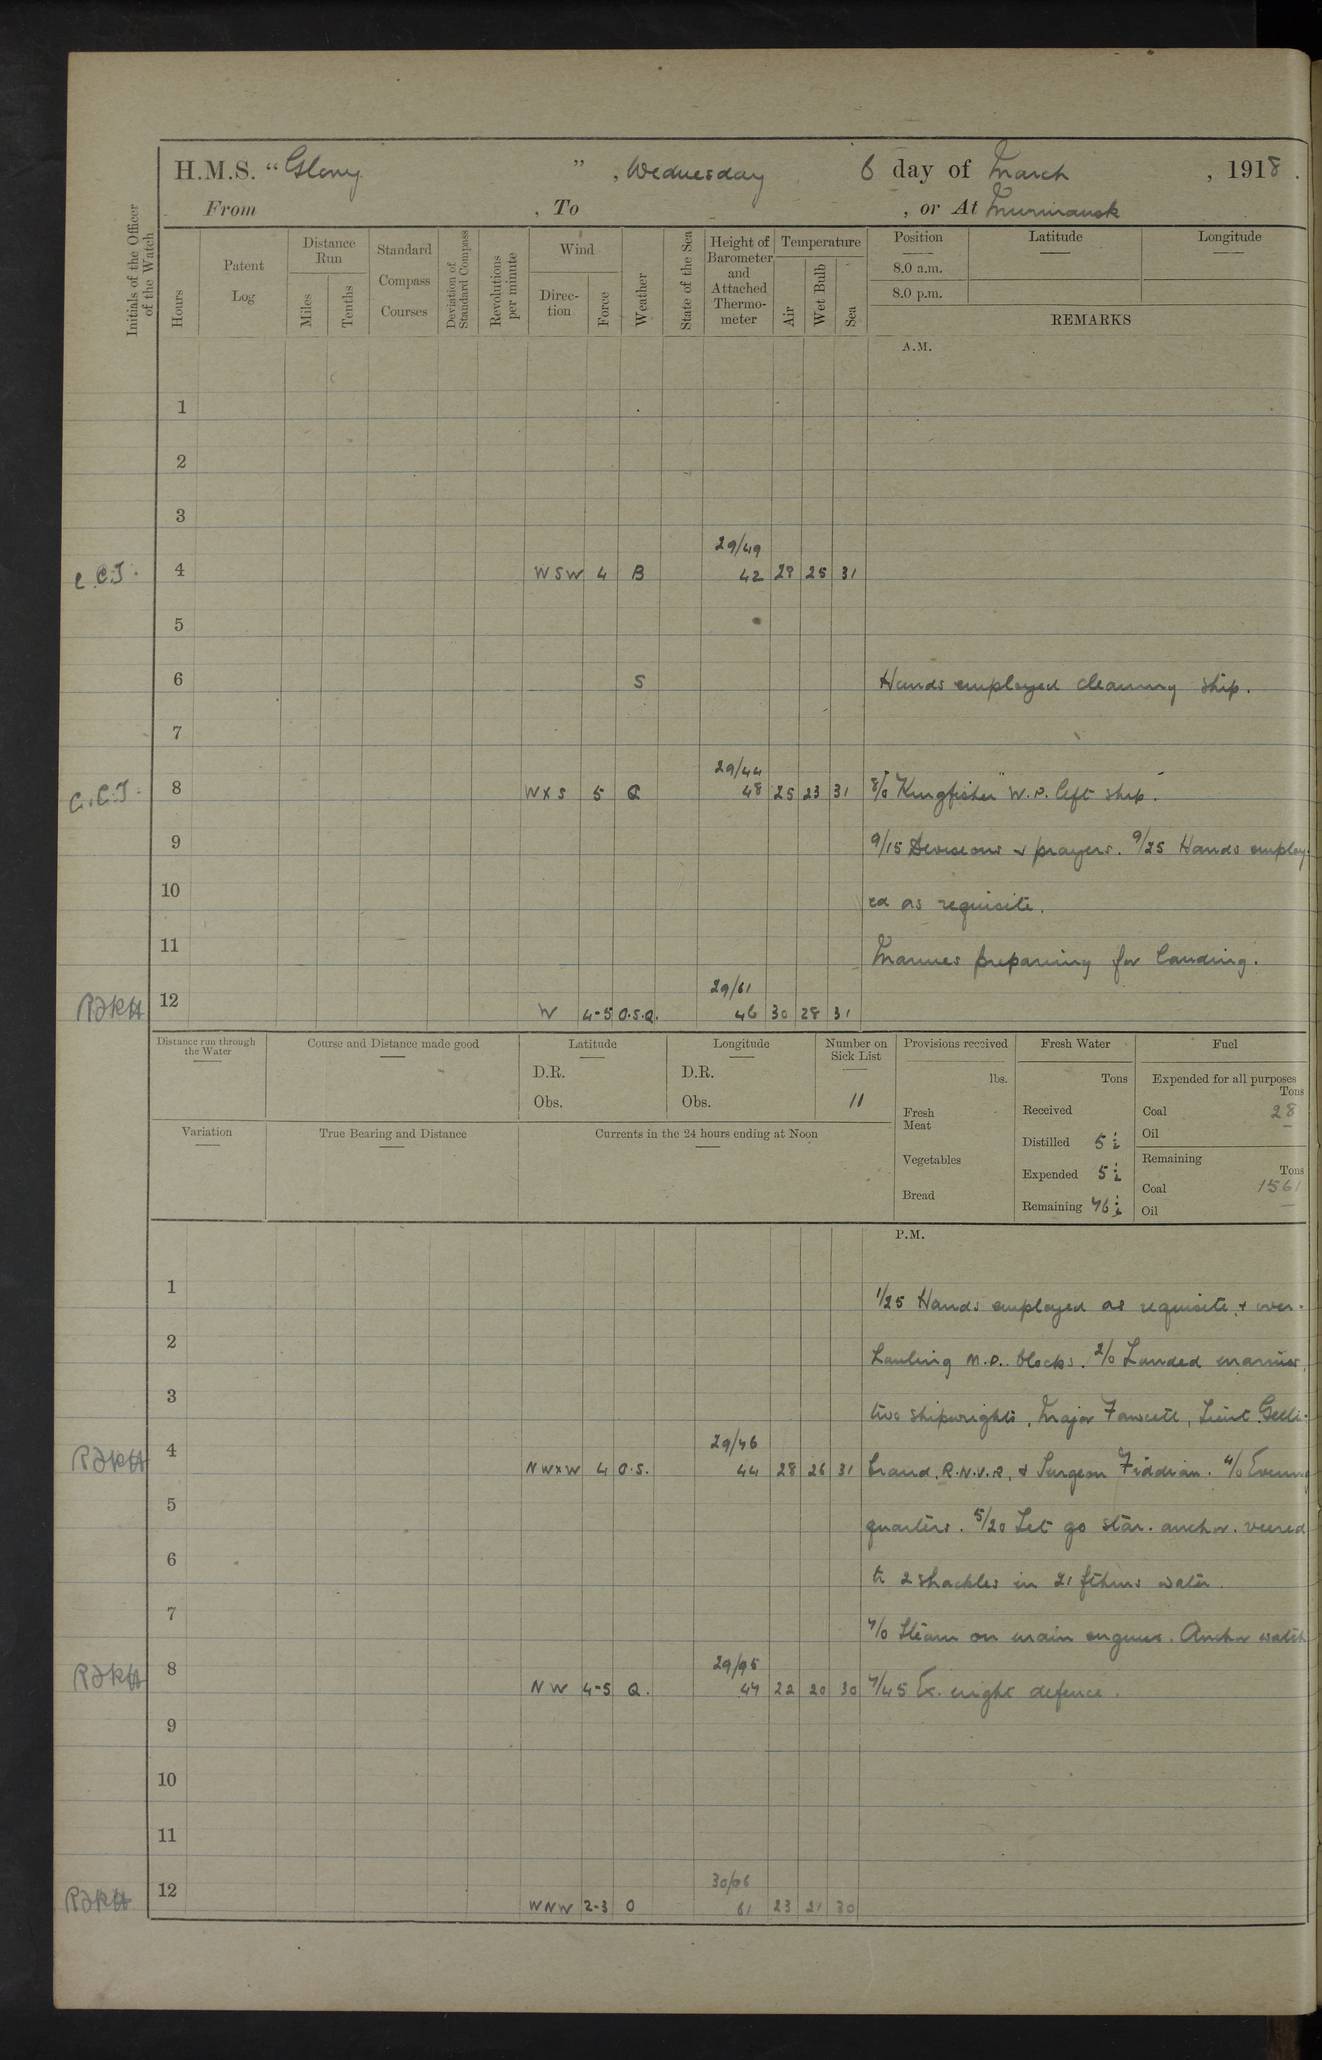 H.M.S. "Glory", Wednesday 6 day of March, 1918.
From , To , or At Murmansk
Initials of the Officer of the Watch
Hours
Patent Log
Distance Run
Miles
Tenths
Standard Compass Courses
Deviation of Standard Compass
Revolutions per minute
Wind
Direc-tion
Force
Weather
State of the Sea
Height of Barometer and Attached Thermo-meter
Temperature
Air
Wet Bulb
Sea
Position
Latitude
Longitude
8.0 a.m.
8.0 p.m.
REMARKS
A.M.
1
2
3
29/49
C.C.J. 4 WSW 4 B 42 28 25 31
5
6 S Hands employed cleaning ship.
7
29/44
C.C.J. 8 WXS 5 Q 48 25 23 31 8/0 "Kingfisher" W.P. left ship.
9 9/15 Divisions & prayers. 9/25 Hands employ-
10 ed as requisite.
11 Marines preparing for landing.
29/61
12 W 4-5 O.S.Q. 46 30 28 31
Distance run through the Water
Course and Distance made good
Latitude
Longitude
Number on Sick List
Provisions received
Fresh Water
Fuel
D.R.
D.R.
lbs.
Tons
Expended for all purposes
Tons
Obs.
Obs.
11
Fresh Meat
Received
Coal 28
Oil –
Variation
True Bearing and Distance
Currents in the 24 hours ending at Noon
Distilled 5½
Vegetables
Remaining
Tons
Expended 5½
Bread
Coal 1561
Remaining 76½
Oil –
P.M.
1 1/25 Hands employed as requisite & over-
2 hauling M.D. blocks. 2/0 Landed marines,
3 two shipwrights, Major Fawcett, Lieut Gelli-
29/76
4 NWXW 4 O.S. 44 28 26 31 brand, R.N.V.R, & Surgeon Fiddian. 4/0 Evening
5 quarters. 5/20 Let go star. anchor. veered
6 to 2 shackles in 21 fthms water.
7 7/0 Steam on main engines. Anchor watch
29/95
8 NW 4-5 Q. 47 22 20 30 7/45 Ex. night defence.
9
10
11
30/06
12 WNW 2-3 O 61 23 21 30